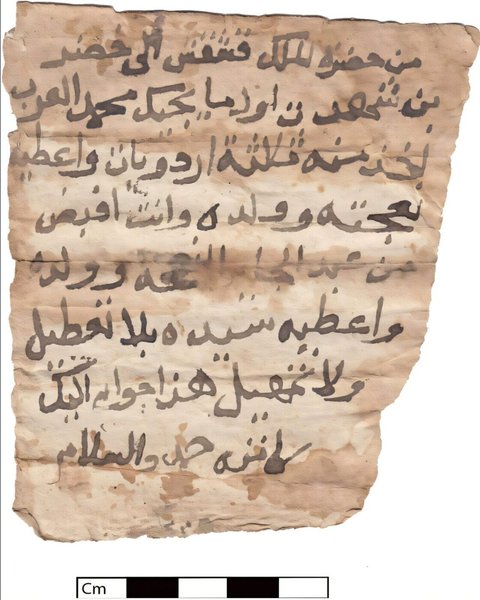 من حضرة الملك قشقش الى خضر
بن شهدت اول ما يجيك محمد العرب
تخذ منه ثلثة اردويات واعطيه
نعجته وولده وانت اقبض
من عبد الجابر النعجة وولده
واعطيه سيده بلا تعطيل
ولا تمهيل هذا جوابي اليك
كاتبه حمد والسلام
Cm